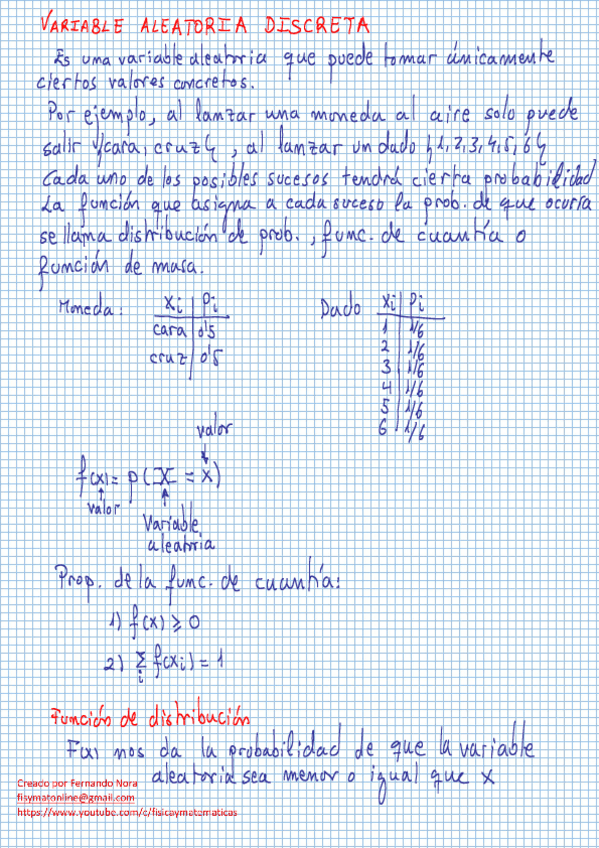 VARIABLE ALEATORIA DISCRETA
Es una variable aleatoria que puede tomar únicamente
ciertos valores concretos.
Por ejemplo, al lanzar una moneda al aire solo puede
salir {cara, cruz}, al lanzar un dado {1,2,3,4,5,6}
Cada uno de los posibles sucesos tendrá cierta probabilidad
La función que asigna a cada suceso la prob. de que ocurra
se llama distribución de prob., func. de cuantía o
función de masa.
Moneda: Xi | Pi
cara | 0'5
cruz | 0'5
Dado Xi | Pi
1 | 1/6
2 | 1/6
3 | 1/6
4 | 1/6
5 | 1/6
6 | 1/6
valor
f(x) = p(X = x)
valor
Variable
aleatoria
Prop. de la func. de cuantía:
1) f(x) ≥ 0
2) Σi f(xi) = 1
Función de distribución
F(x) nos da la probabilidad de que la variable
aleatoria sea menor o igual que x
Creado por Fernando Nora
fisymatonline@gmail.com
https://www.youtube.com/c/fisicaymatematicas